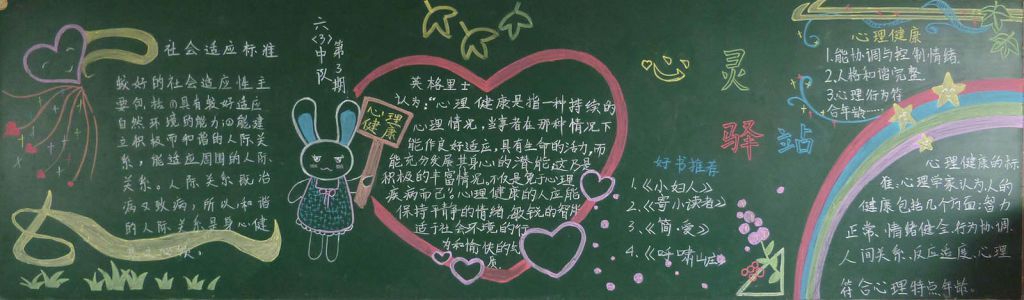 社会适应标准
较好的社会适应性主
要包括(1)具有较好适应
自然环境的能力(2)能建
立积极而和谐的人际关
系,能适应周围的人际
关系。人际关系既治
病又致病,所以,和谐
的人际关系是身心健
六〈3〉中队
第3期
心理
健康
英格里士
认为:“心理健康是指一种持续的
心理情况,当事者在那种情况下
能作良好适应,具有生命的活力,而
能充分发展其身心的潜能,这乃是
积极的丰富情况。不仅是免于心理
疾病而已”。心理健康的人应能
保持平静的情绪,敏锐的智能
适于社会环境的行
为和愉快的气
质
心灵
驿站
好书推荐
1.《小妇人》
2.《寄小读者》
3.《简·爱》
4.《呼啸山庄
心理健康
1.能协调与控制情绪
2.人格和谐完整
3.心理行为符
合年龄……
心理健康的标
准:心理学家认为人的
健康包括几个方面:智力
正常、情绪健全、行为协调、
人间关系、反应适度、心理
符合心理特点年龄。